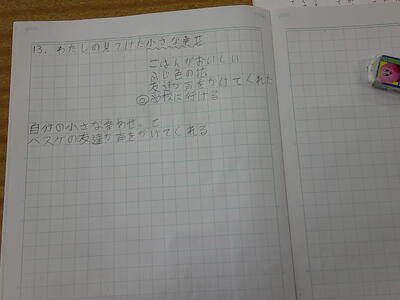 13. わたしの見つけた小さな幸花
ごはんがおいしい
ふじ色の花
友達が声をかけてくれた
◎学校に行ける
自分の小さな幸わせ。と
バスケの友達が声をかけてくれる